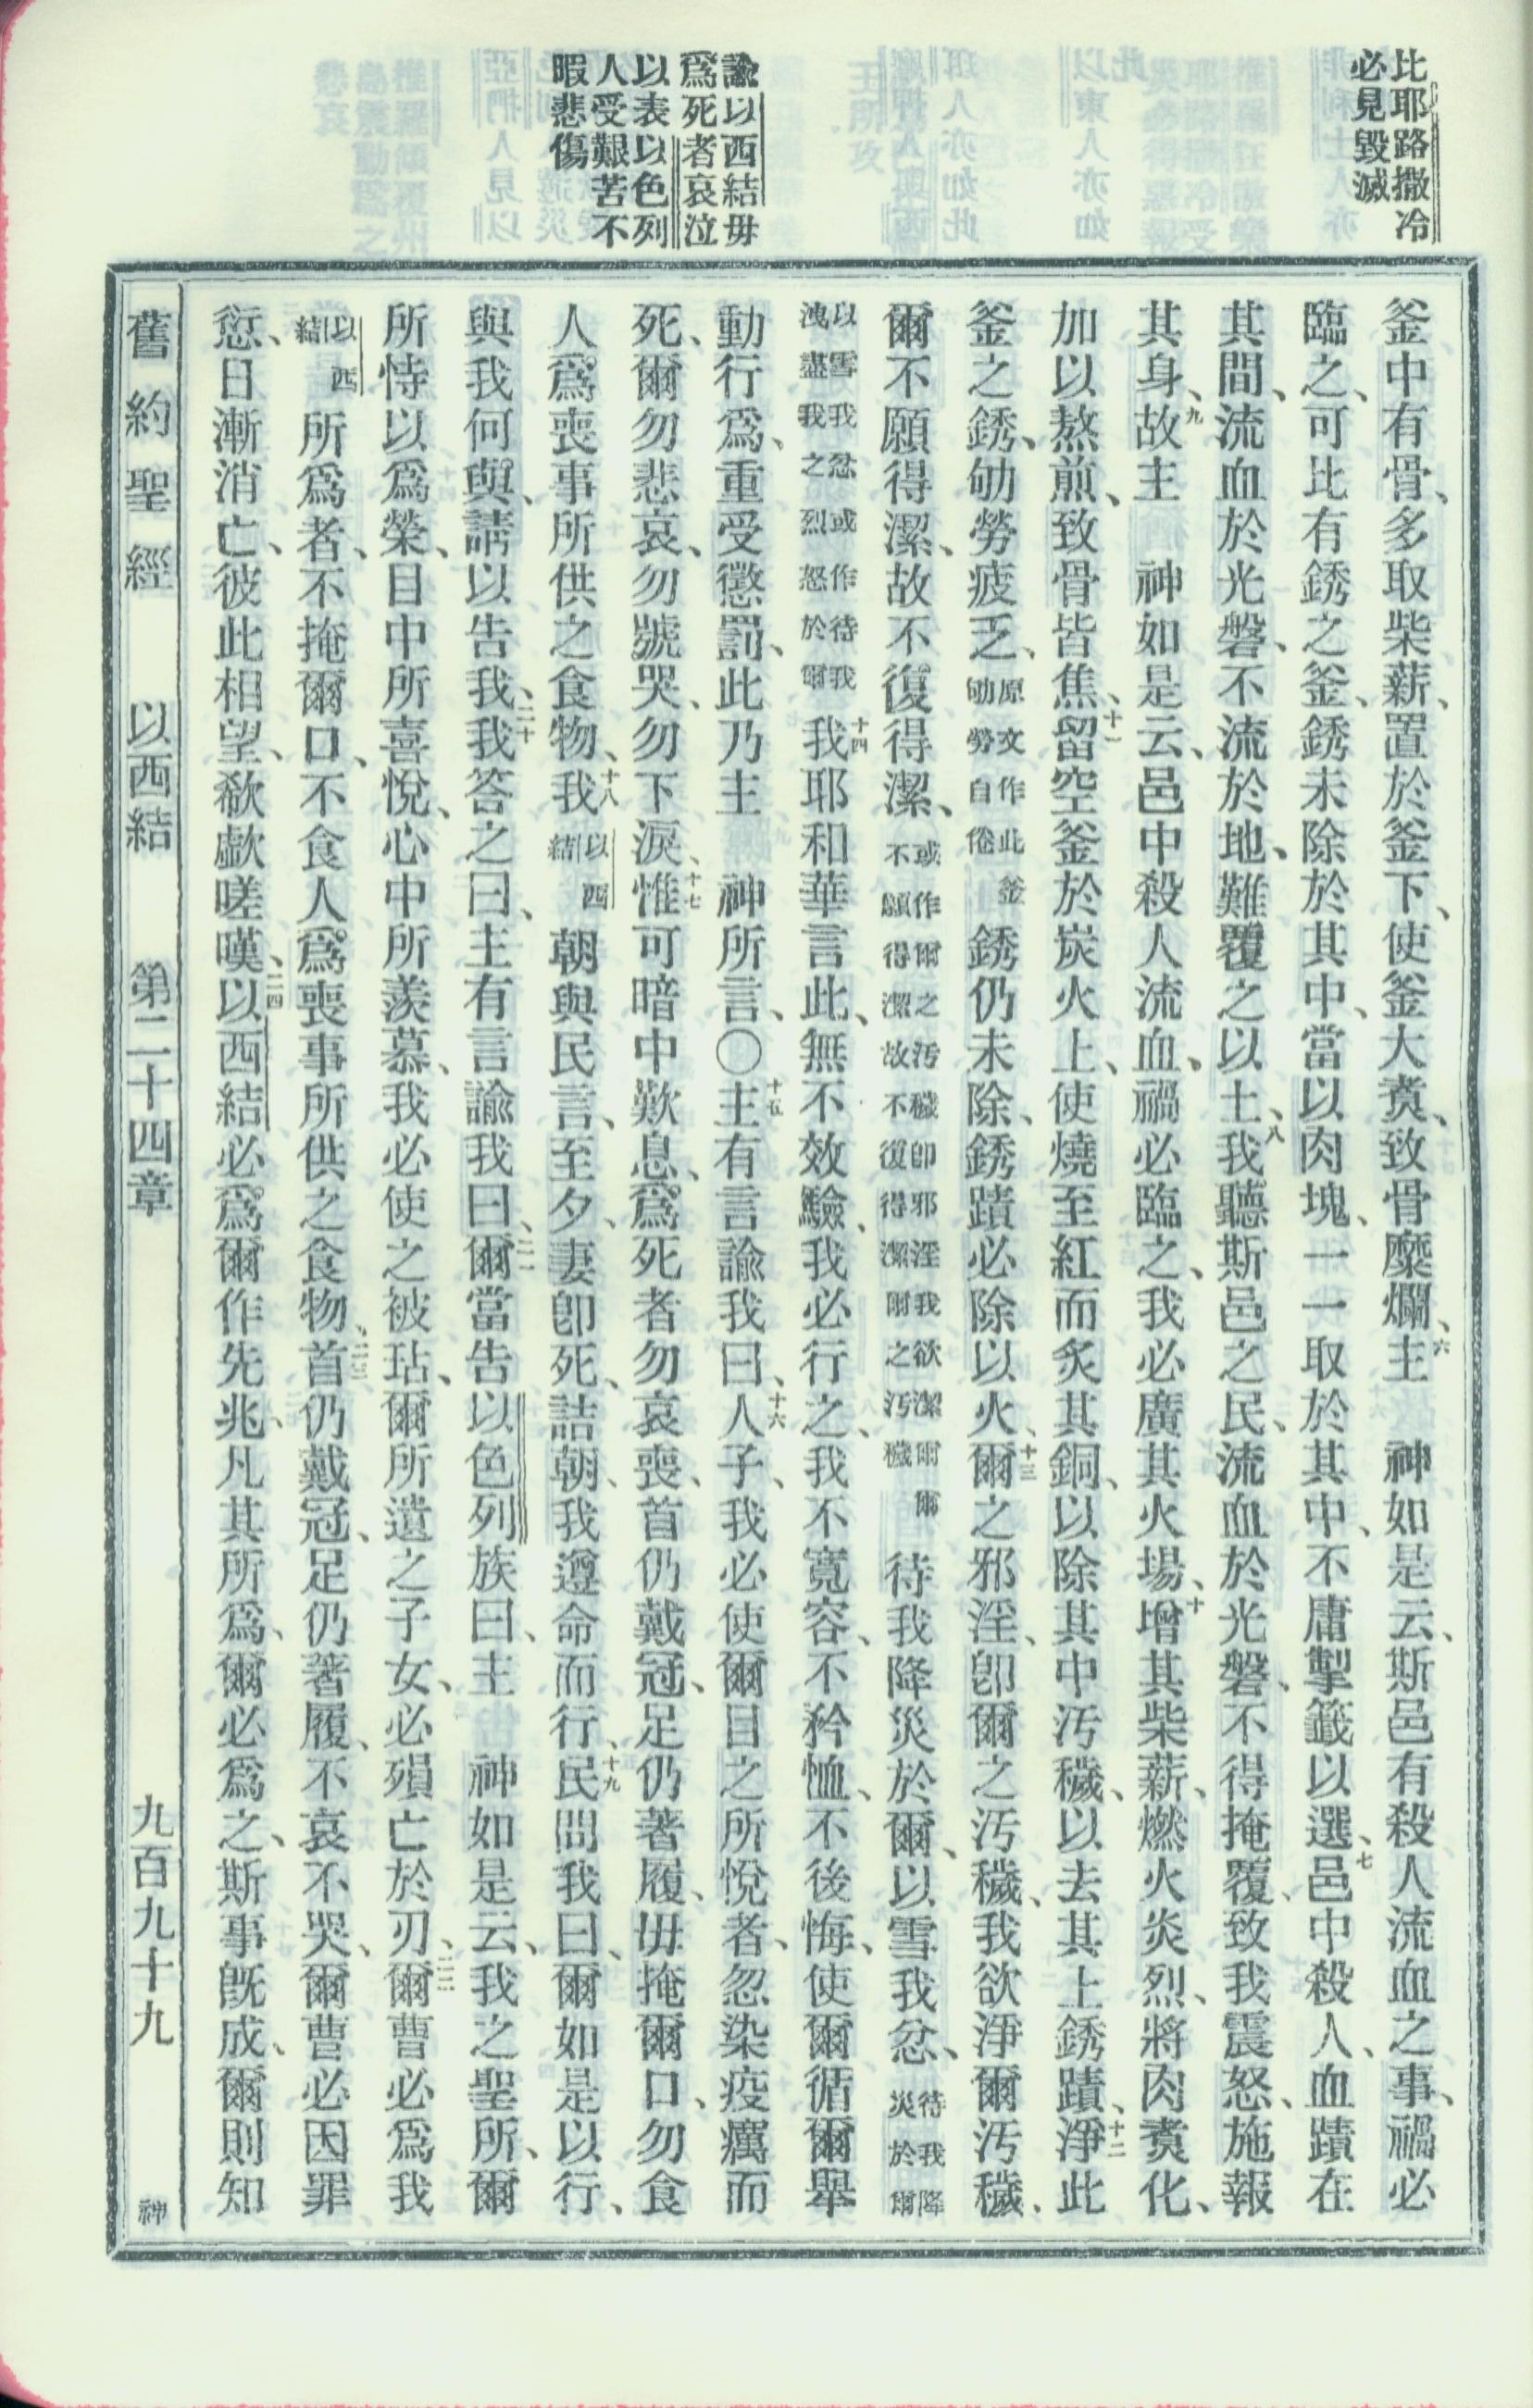 比耶路撒冷
必見毀滅
諭以西結毋
爲死者哀泣
以表以色列
人受艱苦不
暇悲傷
釜中有骨、多取柴薪、置於釜下、使釜大煑、致骨糜爛、六主　神如是云、斯邑有殺人流血之事、禍必
臨之、可比有銹之釜、銹未除於其中、當以肉塊、一一取於其中、不庸掣籤以選、七邑中殺人、血蹟在
其間、流血於光磐、不流於地、難覆之以土、八我聽斯邑之民、流血於光磐、不得掩覆、致我震怒、施報
其身、九故主　神如是云、邑中殺人流血、禍必臨之、我必廣其火場、十增其柴薪、燃火炎烈、將肉煑化、
加以熬煎、致骨皆焦、十一留空釜於炭火上、使燒至紅而炙其銅、以除其中汚穢、以去其上銹蹟、十二淨此
釜之銹、劬勞疲乏、原文作此釜劬勞自倦銹仍未除、銹蹟必除以火、十三爾之邪淫、卽爾之汚穢、我欲淨爾汚穢、
爾不願得潔、故不復得潔、或作爾之汚穢卽邪淫我欲潔爾爾不願得潔故不復得潔爾之汚穢待我降災於爾、以雪我忿、待我降災於爾
以雪我忿或作待我洩盡我之烈怒於爾十四我耶和華言此、無不效驗、我必行之、我不寬容、不矜恤、不後悔、使爾循爾舉
動行爲、重受懲罰、此乃主　神所言、〇十五主有言諭我曰、十六人子、我必使爾目之所悅者、忽染疫癘而
死、爾勿悲哀、勿號哭、勿下淚、十七惟可暗中歎息、爲死者勿哀喪、首仍戴冠、足仍著履、毋掩爾口、勿食
人爲喪事所供之食物、十八我以西結朝與民言、至夕、妻卽死、詰朝、我遵命而行、十九民問我曰、爾如是以行、
與我何與、請以告我、二十我答之曰、主有言諭我曰、二一爾當告以色列族曰、主　神如是云、我之聖所、爾
所恃以爲榮、目中所喜悅、心中所羨慕、我必使之被玷、爾所遺之子女、必殞亡於刃、二二爾曹必爲我
以西結所爲者、不掩爾口、不食人爲喪事所供之食物、二三首仍戴冠、足仍著履、不哀不哭、爾曹必因罪
愆、日漸消亡、彼此相望、欷歔嗟嘆、二四以西結必爲爾作先兆、凡其所爲、爾必爲之、斯事旣成、爾則知
舊約聖經　以西結　第二十四章　九百九十九　神